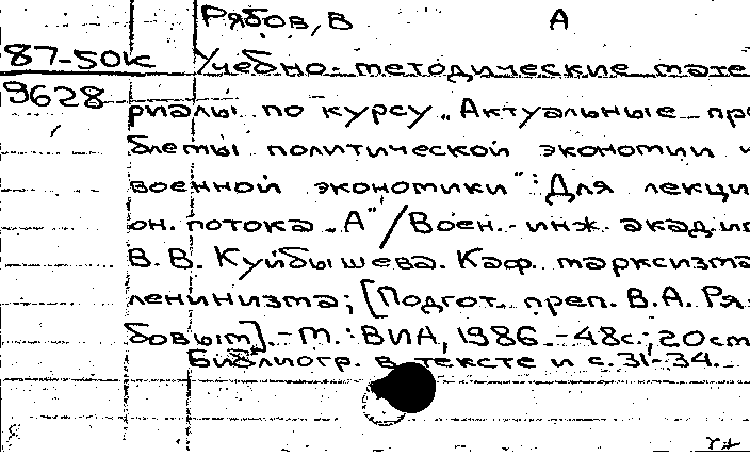 Рябов, В А
87-50к Учебно-методические мате
9628 риалы по курсу „Актуальные про
блемы политической экономии и
военной экономики": Для лекци
он. потока „А" / Воен.-инж. акад. им
В.В. Куйбышева. Каф. марксизма
ленинизма; [Подгот. преп. В.А. Ря
бовым]. - М.: ВИА, 1986. - 48с.; 20см
Библиогр. в тексте и с. 31-34.